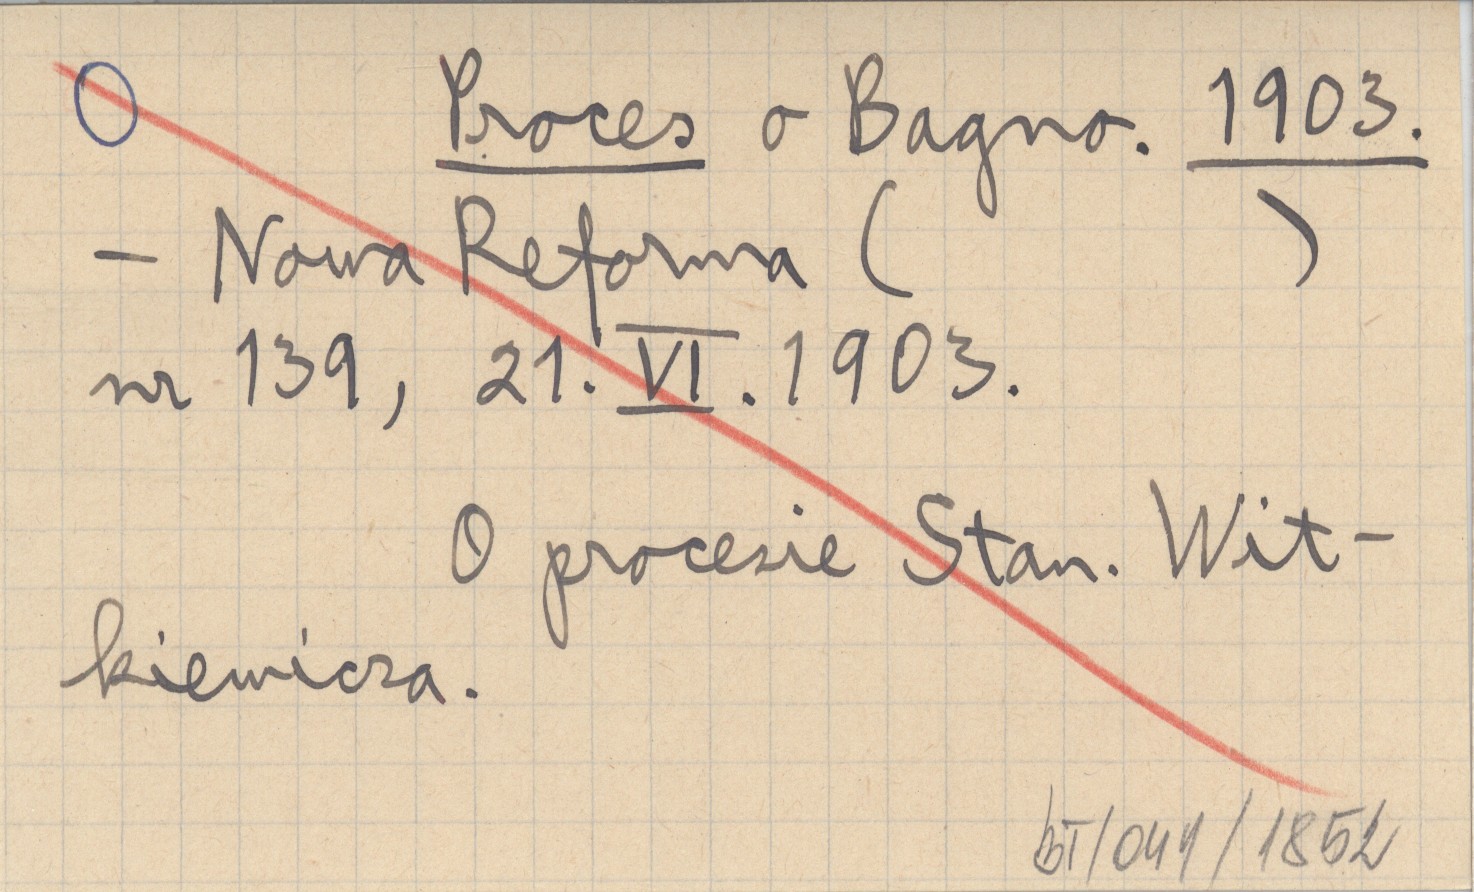 O Proces o Bagno. 1903.
- Nowa Reforma ( )
nr 139, 21. VI. 1903.
O procesie Stan. Wit-
kiewicza.
BT/044/1852